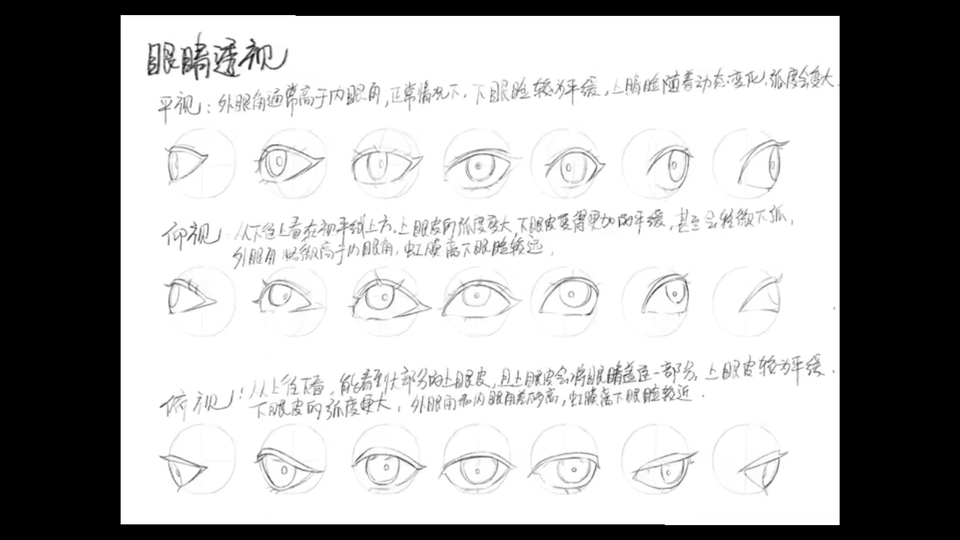 眼睛透视
平视：外眼角通常高于内眼角，正常情况下，下眼睑较为平缓，上眼睑随着动态变化，弧度会变大
仰视：从下往上看在视平线上方，上眼皮的弧度更大，下眼皮变得更加的平缓，甚至会稍微下弧，
外眼角稍微高于内眼角，虹膜离下眼睑较远，
俯视：从上往下看，能看到大部分的上眼皮，且上眼皮会将眼睛盖住一部分，上眼皮较为平缓，
下眼皮的弧度更大，外眼角和内眼角差不多高，虹膜离下眼睑较近．